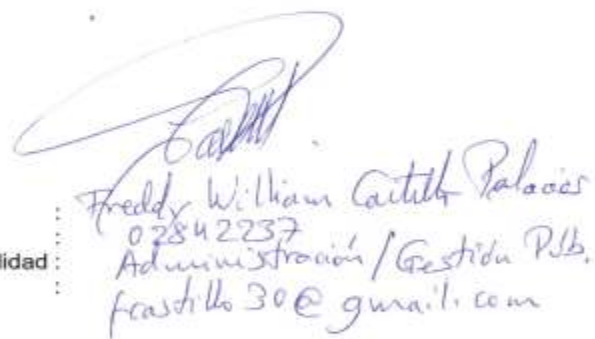 : Freddy William Castillo Palacios
: 02842237
lidad : Administración / Gestión Púb.
: fcastillo30@gmail.com